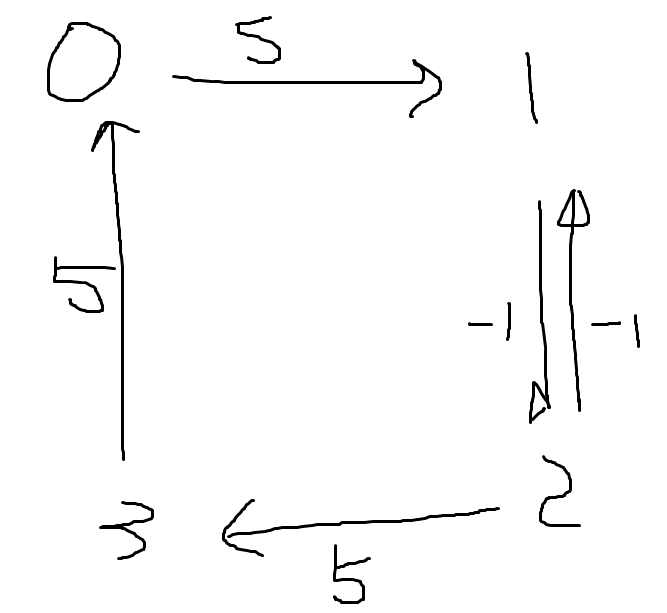 0 5 1
5 -1 -1
3 5 2